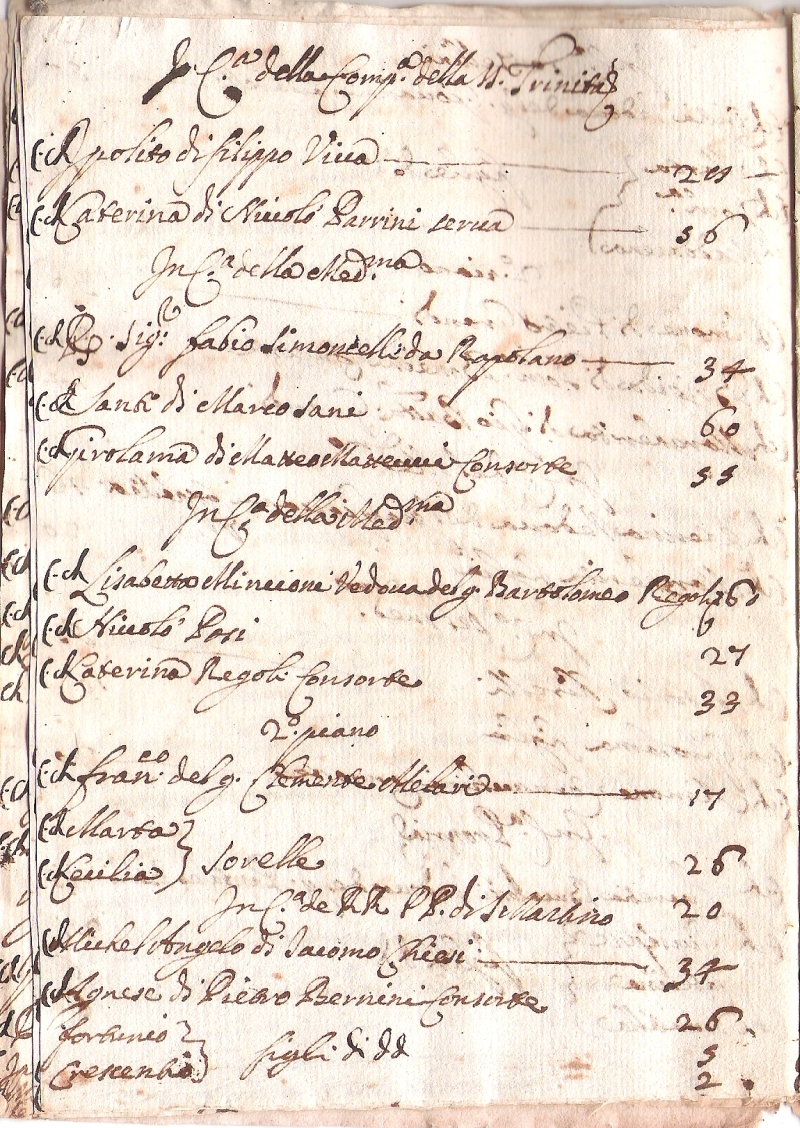 In C.a della Comp.a della SS. Trinità
C. ch Ipolito di Filippo Vicca 28
C. ch Katerina di Niccolò Parrini serua 56
In C.a della Med.ma
C. ch R. Sig.r Fabio Simoncelli da Rapolano 34
C. ch Santi di Marco Sani 60
C. ch Girolama di Matteo Matteucci Consorte 55
In C.a della Med.ma
C. ch Lisabetta Mincioni Vedoua del q. Bartolomeo Regoli 60
C. ch Niccolò Posi 27
C. ch Katerina Regoli Consorte 33
2.o piano
C. ch Fran.co del q. Clemente 17
C. ch Marta
C. ch Cecilia } Sorelle 26
In C.a de RR. PP. di S. Martino 20
C. ch Michel Angelo di Jacomo Chiesi 34
C. ch Agnese di Pietro Bernini Consorte 26
Fortunio 5
Crescentio } figli di dd 2